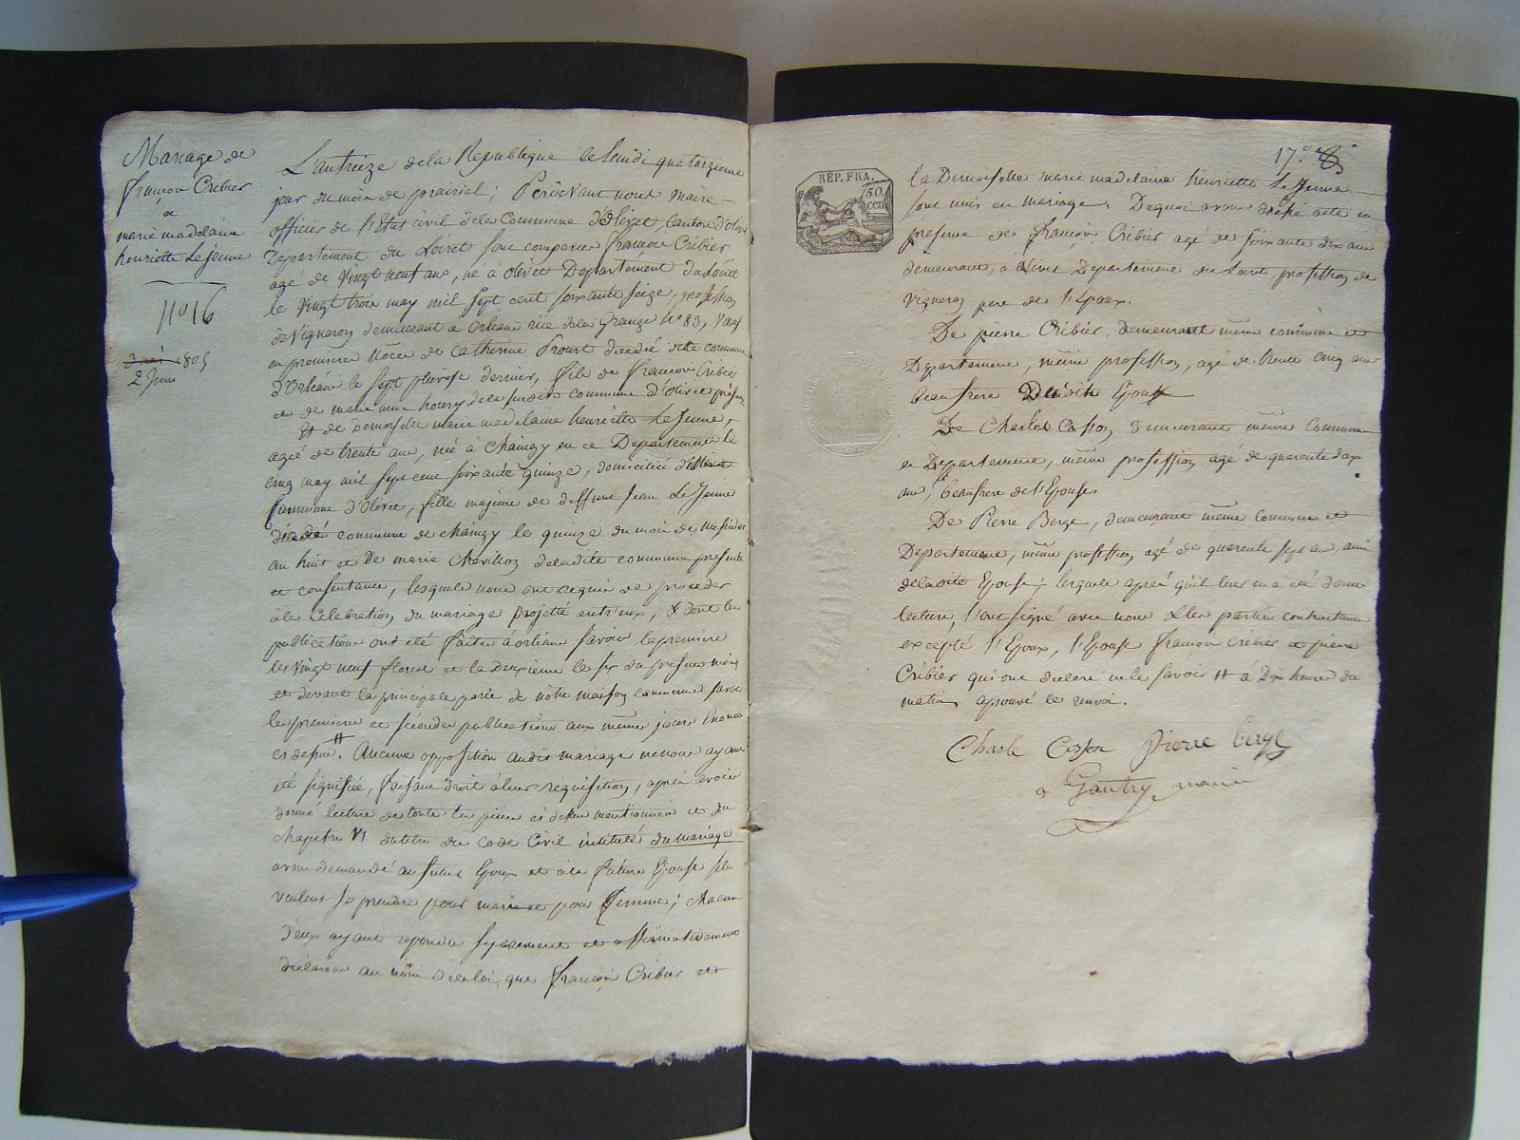 Mariage de
françois Cribier
&
marie madelaine
henriette Le jeune
N° 16
1805
2 Juin
L'an treize de la Republique le lundi quatorzieme
jour du mois de prairial; Pardevant nous Maire
officier de l'Etat civil de la Commune d'Olivet Canton d'Olivet
Departement du Loiret sont comparus françois Cribier
agé de vingt neuf ans, né à olivet Departement du Loiret
le vingt trois may mil sept cent soixante seize, profession
de Vigneron demeurant à Orleans rue de la Grange N° 83, veuf
en premiere Noce de Catherine Proust decedé dite commune
d'Orleans le sept pluviose dernier, fils de françois Cribier
et de marie anne houry de la susdite commune d'Olivet
Et de Demoiselle marie madelaine henriette Le Jeune,
agée de trente ans, née à Chaingy en ce Departement le
cinq may mil sept cent soixante quinze, domiciliée
commune d'Olivet, fille majeure de deffunt Jean Le Jeune
décédé commune de chaingy le quinze du mois de messidor
an huit et de marie Chavillon de la dite commune presente
et consentante, lesquels nous ont requis de proceder
à la Célébration du mariage projetté entr'eux, & dont les
publications ont été faites à orleans savoir la premiere
le vingt neuf floreal et la Deuxieme le six du present mois
et devant la principale porte de notre maison commune savoir
les premiere et seconde publications aux mêmes jours
ci dessus #. Aucune opposition audit mariage ne nous ayant
été signifiée, faisant droit à leur requisition, après avoir
donné lecture de toutes les pieces ci dessus mentionnées et du
chapitre VI du titre du Code Civil intitulé du mariage
avons demandé au futur Epoux et à la future Epouse s'ils
veulent se prendre pour mari et pour femme; chacun
d'eux ayant repondu separement et affirmativement
declarons au nom de la loi, que françois Cribier et
17.e
RÉP. FRA.
50
la Demoiselle marie madelaine henriette Le Jeune
sont unis en mariage. De quoi avons dressé acte en
presence de françois Cribier agé de soixante dix ans
demeurant à Olivet Departement du Loiret, profession de
Vigneron pere de l'Epoux.
De pierre Cribier demeurant même commune et
Departement, même profession, agé de trente cinq ans
beau frere Dudit Epoux
De Charles Casson, demeurant même Commune
et Departement, même profession agé de quarente deux
ans, beau frere de l'Epouse
De Pierre Berge, demeurant même commune et
Departement, même profession, agé de quarente sept ans, ami
de la dite Epouse; lesquels après qu'il leur en a été donné
lecture, l'ont signé avec nous & les parties contractantes
excepté l'Epoux, l'Epouse françois Cribier et pierre
Cribier qui ont declaré ne le savoir # à dix heures du
matin aprouvé le renvoi.
Charle Casson Pierre berge
Gautry, maire